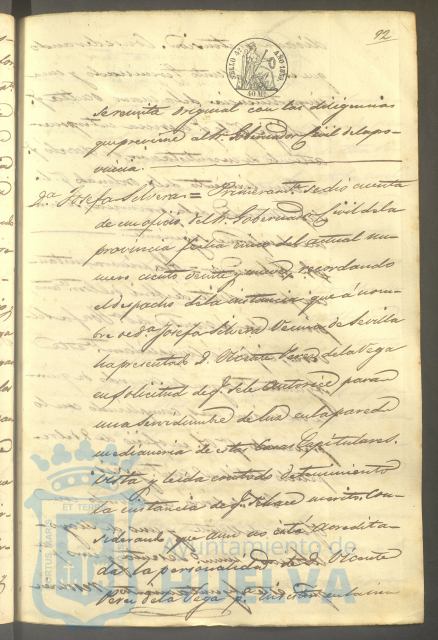 92
SELLO 4º AÑO 1863
40 Ms
se remita original con las diligencias
que previene el Sr. Gobernador Civil de la pro-
vincia.
D.ª Josefa Silvera = Primeramte. se dio cuenta
de un oficio del Sr. Gobernador Civil de la
provincia fecha cinco del actual nu-
mero ciento veinte y nueve, recordando
el despacho de la instancia que á nom-
bre de d.ª Josefa Silvera Vecina de Sevilla
ha presentado D. Vicente Perez de la Vega
en solicitud de q.e se le autorice para
una servidumbre de luz en la pared
medianeria de estas Casas Capitulares.
Vista y leida con todo detenimiento
la instancia de q.e se hace merito. Con-
siderando que aun no está acredita-
da la personalidad de D. Vicente
Perez de la Vega p.a
Ayuntamiento de
HUELVA
PORTUS MARIS ET TERRAE